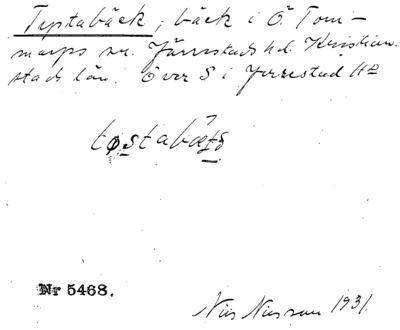 Tystabäck, bäck i Ö. Tom-
marps sn. Järrestads hd. Kristian-
stads län. Över S i Jerrestad Hd
Nr 5468.
Nils Nilsson 1931.